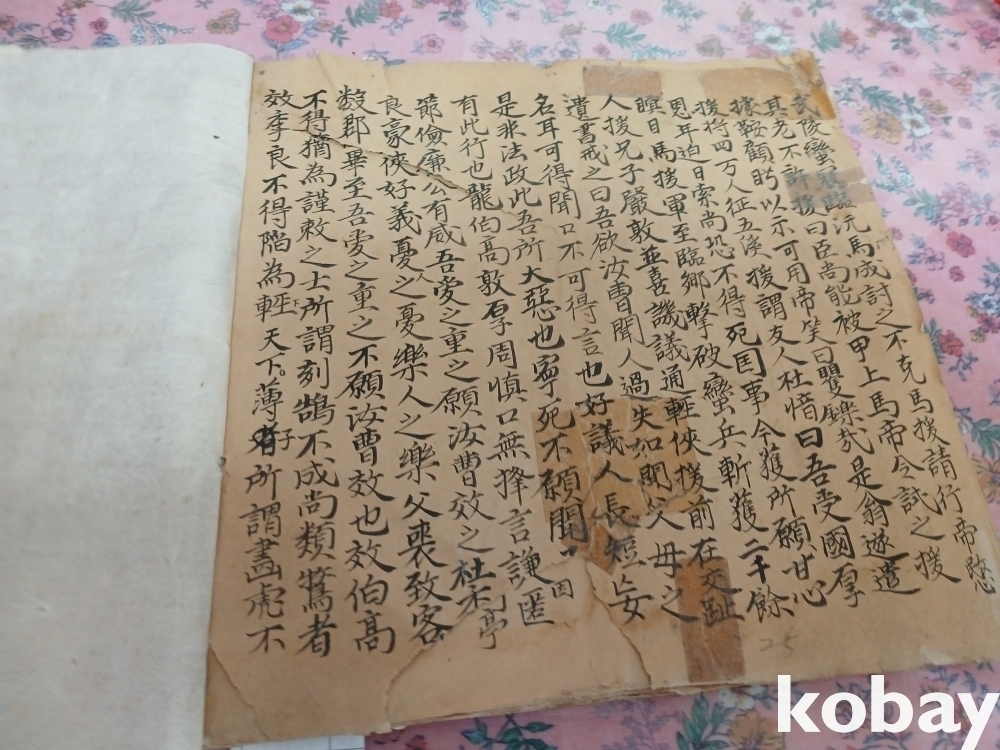 武陵蠻寇臨沅馬成討之不克馬援請行帝愍
其老不許援曰臣尚能被甲上馬帝令試之援
據鞍顧眄以示可用帝笑曰矍鑠哉是翁遂遣
援将四万人征五溪援謂友人杜愔曰吾受國厚
恩年迫日索尚恐不得死国事今獲所願甘心
瞑目馬援軍至臨鄉擊破蠻兵斬獲二千餘
人援兄子嚴敦並喜譏議通輕俠援前在交趾
遺書戒之曰吾欲汝曹聞人過失如聞父母之
名耳可得聞口不可得言也好議人長短妄
是非法政此吾所大惡也寧死不願聞
有此行也龍伯高敦厚周慎口無擇言謙
節儉廉公有威吾愛之重之願汝曹效之杜季
良豪俠好義憂人之憂樂人之樂父喪致客
数郡畢至吾愛之重之不願汝曹效也效伯高
不得猶為謹敕之士所謂刻鵠不成尚類鶩者
效季良不得陷為輕天下薄子所謂畫虎不
25
kobay